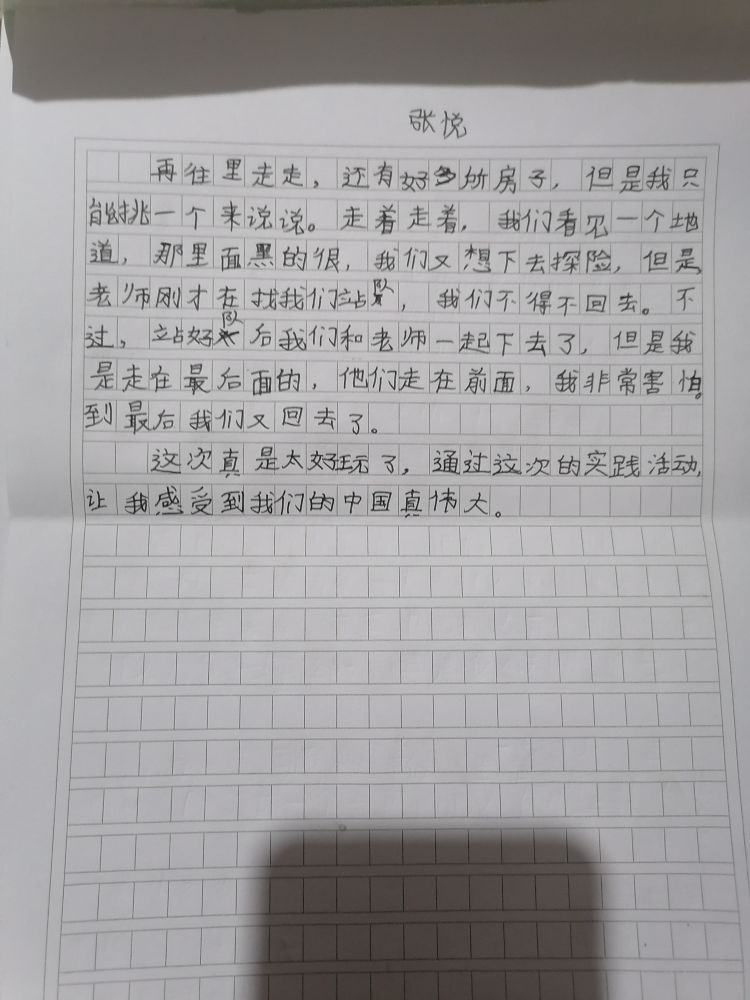 张悦
再往里走走，还有好多所房子，但是我只
能挑一个来说说。走着走着，我们看见一个地
道，那里面黑的很，我们又想下去探险，但是
老师刚才在找我们站队，我们不得不回去。不
过，站好队后我们和老师一起下去了，但是我
是走在最后面的，他们走在前面，我非常害怕。
到最后我们又回去了。
这次真是太好玩了，通过这次的实践活动，
让我感受到我们的中国真伟大。